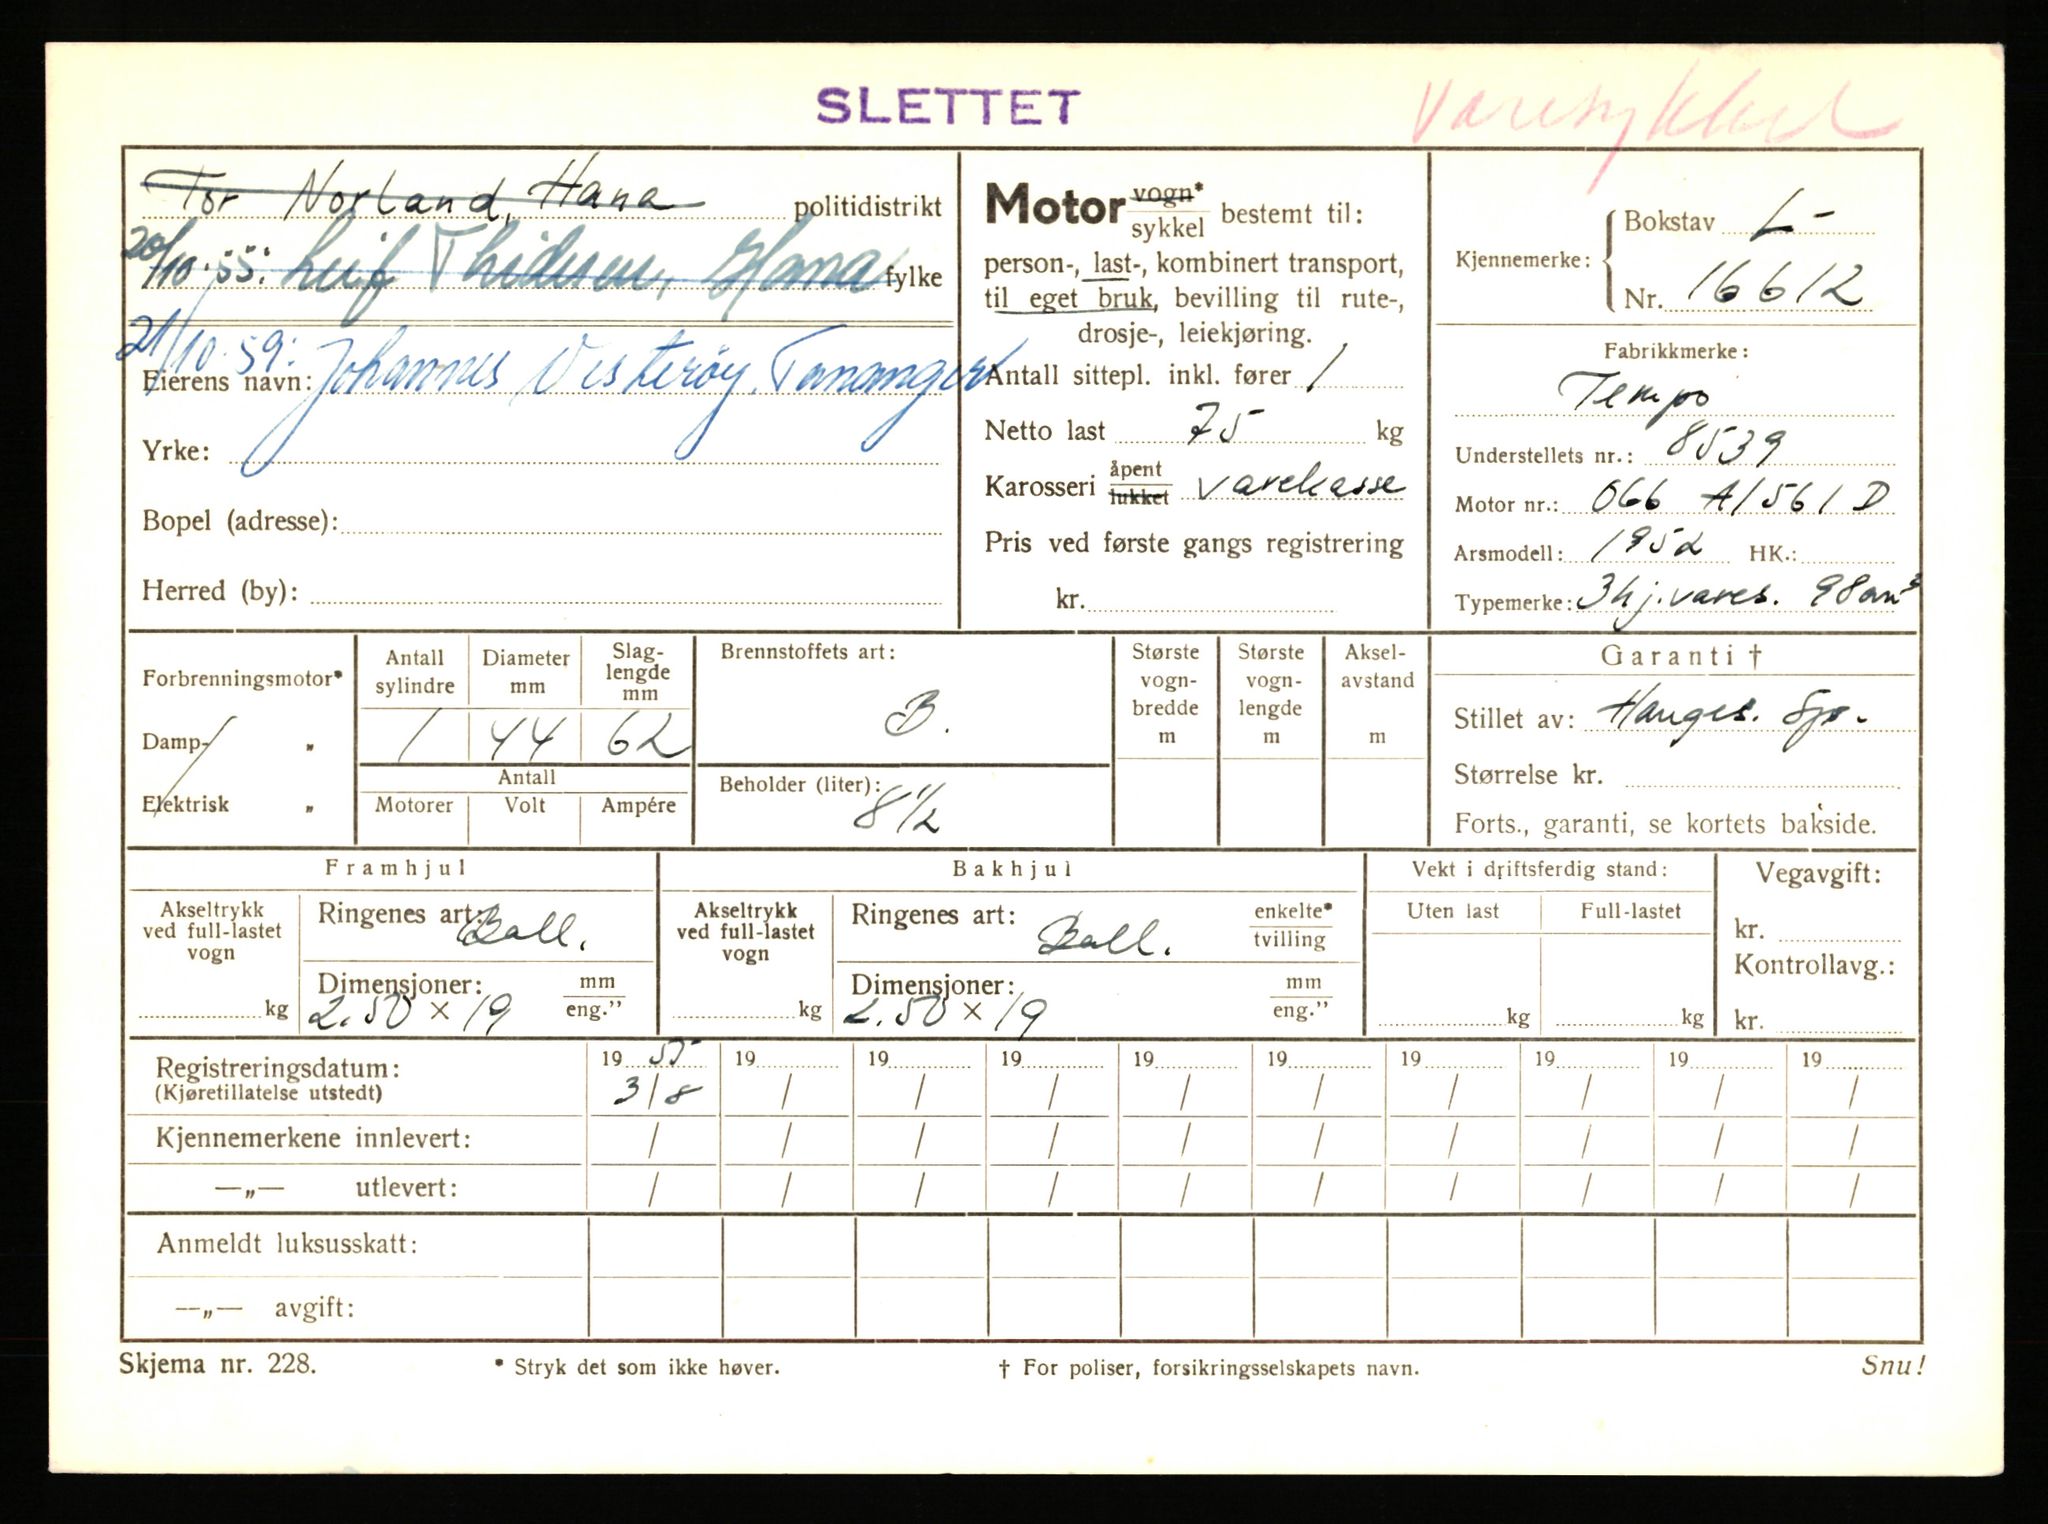 SLETTET
Varesykkel
Tor Norland, Hana politidistrikt
20/10.55: Leif Thidesen, Hana fylke
21/10.59: Johannes Vesterøy. Tananger
Eierens navn:
Yrke:
Bopel (adresse):
Herred (by):
Motor vogn* sykkel bestemt til:
person-, last-, kombinert transport,
til eget bruk, bevilling til rute-,
drosje-, leiekjøring.
Antall sittepl. inkl. fører 1
Netto last 75 kg
Karosseri åpent lukket varekasse
Pris ved første gangs registrering
kr.
Kjennemerke:
Bokstav L-
Nr. 16612
Fabrikkmerke:
Tempo
Understellets nr.: 8539
Motor nr.: 066 A1561 D
Arsmodell: 1952 HK.:
Typemerke: 3hj. vares. 98cm³
Forbrenningsmotor*
Damp- „
Elektrisk „
Antall sylindre
Diameter mm
Slag-
lengde
mm
1 44 62
Antall
Motorer Volt Ampére
Brennstoffets art:
B.
Beholder (liter):
8 1/2
Største
vogn-
bredde
m
Største
vogn-
lengde
m
Aksel-
avstand
m
Garanti †
Stillet av: Hauges.
Størrelse kr.
Forts., garanti, se kortets bakside.
Framhjul
Akseltrykk
ved full-lastet
vogn
kg
Ringenes art: Ball.
Dimensjoner: mm
2.50 x 19 eng.”
Bakhjul
Akseltrykk
ved full-lastet
vogn
kg
Ringenes art: Ball. enkelte*
tvilling
Dimensjoner: mm
2.50 x 19 eng.”
Vekt i driftsferdig stand:
Uten last Full-lastet
kg kg
Vegavgift:
kr.
Kontrollavg.:
kr.
Registreringsdatum: 19 55 19 19 19 19 19 19 19 19 19
(Kjøretillatelse utstedt) 3/8 / / / / / / / / /
Kjennemerkene innlevert: / / / / / / / / / /
—„— utlevert: / / / / / / / / / /
Anmeldt luksusskatt:
—„— avgift:
Skjema nr. 228. * Stryk det som ikke høver. † For poliser, forsikringsselskapets navn. Snu!